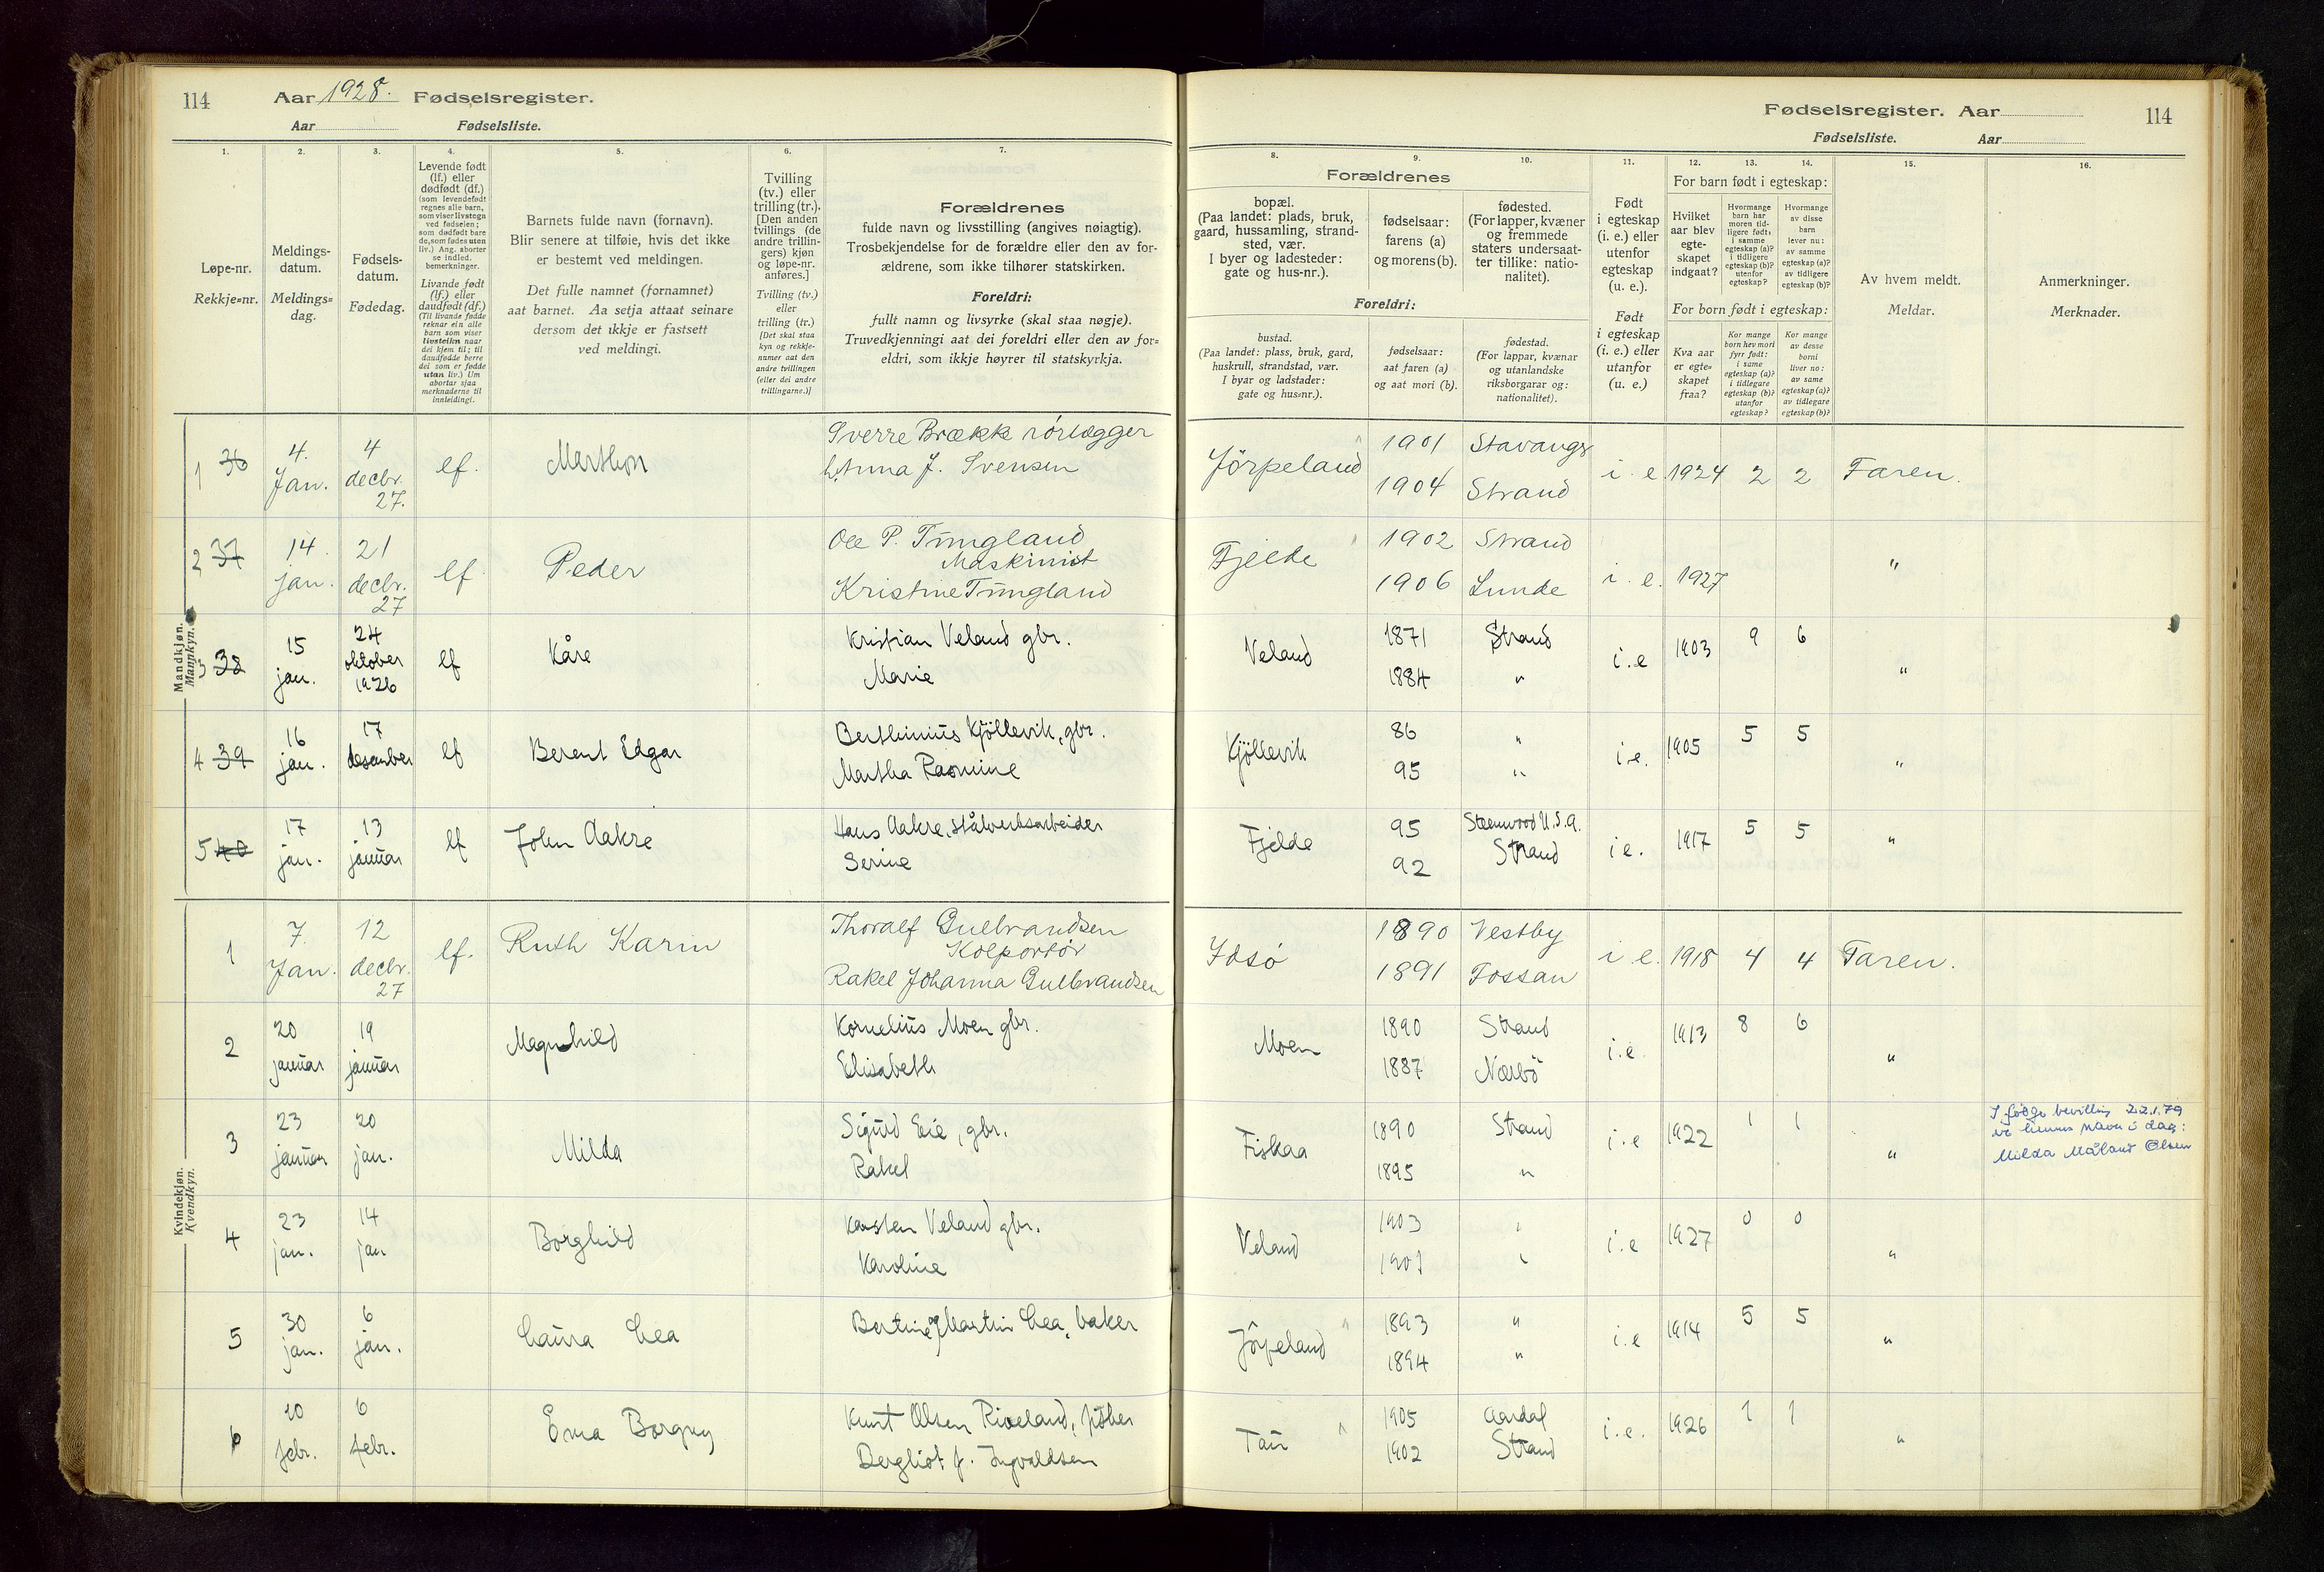 114 Aar 1928. Fødselsregister.
Aar Fødselsliste.
Fødselsregister. Aar 114
Fødselsliste. Aar
1. 2. 3. 4. 5. 6. 7. 8. 9. 10. 11. 12. 13. 14. 15. 16.
Løpe-nr.
Rekkje=nr.
Meldings-
datum.
Meldings=
dag.
Fødsels-
datum.
Fødedag.
Levende født
(lf.) eller
dødfødt (df.)
(som levendefødt
regnes alle barn,
som viser livstegn
ved fødselen;
som dødfødt bare
de, som fødes uten
liv.) Ang. aborter
se indled.
bemerkninger.
Livande født
(lf.) eller
daudfødt (df.)
(Til livande fødde
reknar ein alle
barn som viser
livsteikn naar
dei kjem til; til
daudfødde berre
dei som er fødde
utan liv.) Um
abortar sjaa
merknaderne til
innleidingi.
Barnets fulde navn (fornavn).
Blir senere at tilføie, hvis det ikke
er bestemt ved meldingen.
Det fulle namnet (fornamnet)
aat barnet. Aa setja attaat seinare
dersom det ikkje er fastsett
ved meldingi.
Tvilling
(tv.) eller
trilling (tr.).
[Den anden
tvillings (de
andre trillin-
gers) kjøn
og løpe-nr.
anføres.]
Tvilling (tv.)
eller
trilling (tr.)
[Det skal staa
kyn og rekkje-
numer aat den
andre tvillingen
(eller dei andre
trillingarne.)]
Forældrenes
fulde navn og livsstilling (angives nøiagtig).
Trosbekjendelse for de forældre eller den av for-
ældrene, som ikke tilhører statskirken.
Foreldri:
fullt namn og livsyrke (skal staa nøgje).
Truvedkjenningi aat dei foreldri eller den av for=
eldri, som ikkje høyrer til statskyrkja.
Forældrenes
bopæl.
(Paa landet: plads, bruk,
gaard, hussamling, strand-
sted, vær.
I byer og ladesteder:
gate og hus-nr.).
fødselsaar:
farens (a)
og morens (b).
fødested.
(For lapper, kvæner
og fremmede
staters undersaat-
ter tillike: natio-
nalitet).
Foreldri:
bustad.
(Paa landet: plass, bruk, gard,
huskrull, strandstad, vær.
I byar og ladstader:
gate og hus=nr.).
fødselsaar:
aat faren (a)
og aat mori (b).
fødestad.
(For lappar, kvænar
og utanlandske
riksborgarar og:
nationalitet).
Født
i egteskap
(i. e.) eller
utenfor
egteskap
(u. e.).
Født
i egteskap
(i. e.) eller
utanfor
(u. e.)
For barn født i egteskap:
Hvilket
aar blev
egte-
skapet
indgaat?
Hvormange
barn har
moren tid-
ligere født:
i samme
egteskap (a)?
i tidligere
egteskap (b)?
utenfor
egteskap?
Hvormange
av disse
barn
lever nu:
av samme
egteskap (a)?
av tidligere
egteskap (b)?
For born født i egteskap:
Kva aar
er egte=
skapet
fraa?
Kor mange
born hev mori
fyrr født:
i same
egteskap (a)?
i tidlegare
egteskap (b)?
utanfor
egteskap?
Kor mange
av desse
borni
liver no:
av same
egteskap (a)?
av tidlegare
egteskap (b)?
Av hvem meldt.
Meldar.
Anmerkninger.
Merknader.
Mandkjøn.
Mannkyn.
1 36 4. Jan. 4 decbr. 27. lf.
Sverre Brække rörlægger
Anna J. Svensen
Jörpeland 1901 Stavanger
1904 Strand i. e. 1924 2 2 Faren.
2 37 14. jan. 21 decbr. 27 lf. Peder
Ole P. Tungland
Maskinist
Kristine Tungland
Fjelde 1902 Strand
1906 Lunde i. e. 1927 "
3 38 15 jan. 24 oktober 1926 lf Kåre
Kristian Veland gbr.
Marie
Veland 1871 Strand
1884 " i.e 1903 9 6 "
4 39 16 jan. 17 desember lf Berent Edgar
Berthinius Kjöllevik, gbr.
Martha Rasmine
Kjöllevik 86 "
95 " i.e. 1905 5 5 "
5 40 17 jan. 13 januar lf John Aakre
Hans Aakre, stålverksarbeider
Serine
Fjelde 95 U.S.A.
92 Strand i e. 1917 5 5 "
Kvindekjøn.
Kvendkyn.
1 7. Jan. 12 decbr. 27 lf. Ruth Karin
Thoralf Gulbrandsen
Kolportör
Rakel Johanna Gulbrandsen
Idsö 1890 Vestby
1891 Fossan i e. 1918 4 4 Faren.
2 20 januar 19 januar Magnhild
Kornelius Moen gbr.
Elisabeth
Moen 1890 Strand
1887 Nærbö i.e. 1913 8 6 "
3 23 januar 20 jan. Milda
Sigurd Eie, gbr.
Rakel
Fiskaa 1890 Strand
1895 " i e 1922 1 1 "
I følge bevilling 22.1.79
er hennes navn i dag:
Milda Måland Olsen
4 23 jan. 14 jan Borghild
Karsten Veland gbr.
Karoline
Veland 1903 "
1901 " i.e 1927 0 0 "
5 30 jan. 6 jan. Laura Lea
Bertine og Martin Lea, baker
Jörpeland 1893 "
1894 " i.e 1914 5 5 "
6 10 febr. 6 febr. Erna Borgny
Kurt Olsen Riveland, fisker
Bergliot J. Ingvaldsen
Tau 1905 Aardal
1902 Strand i.e. 1926 1 1 "